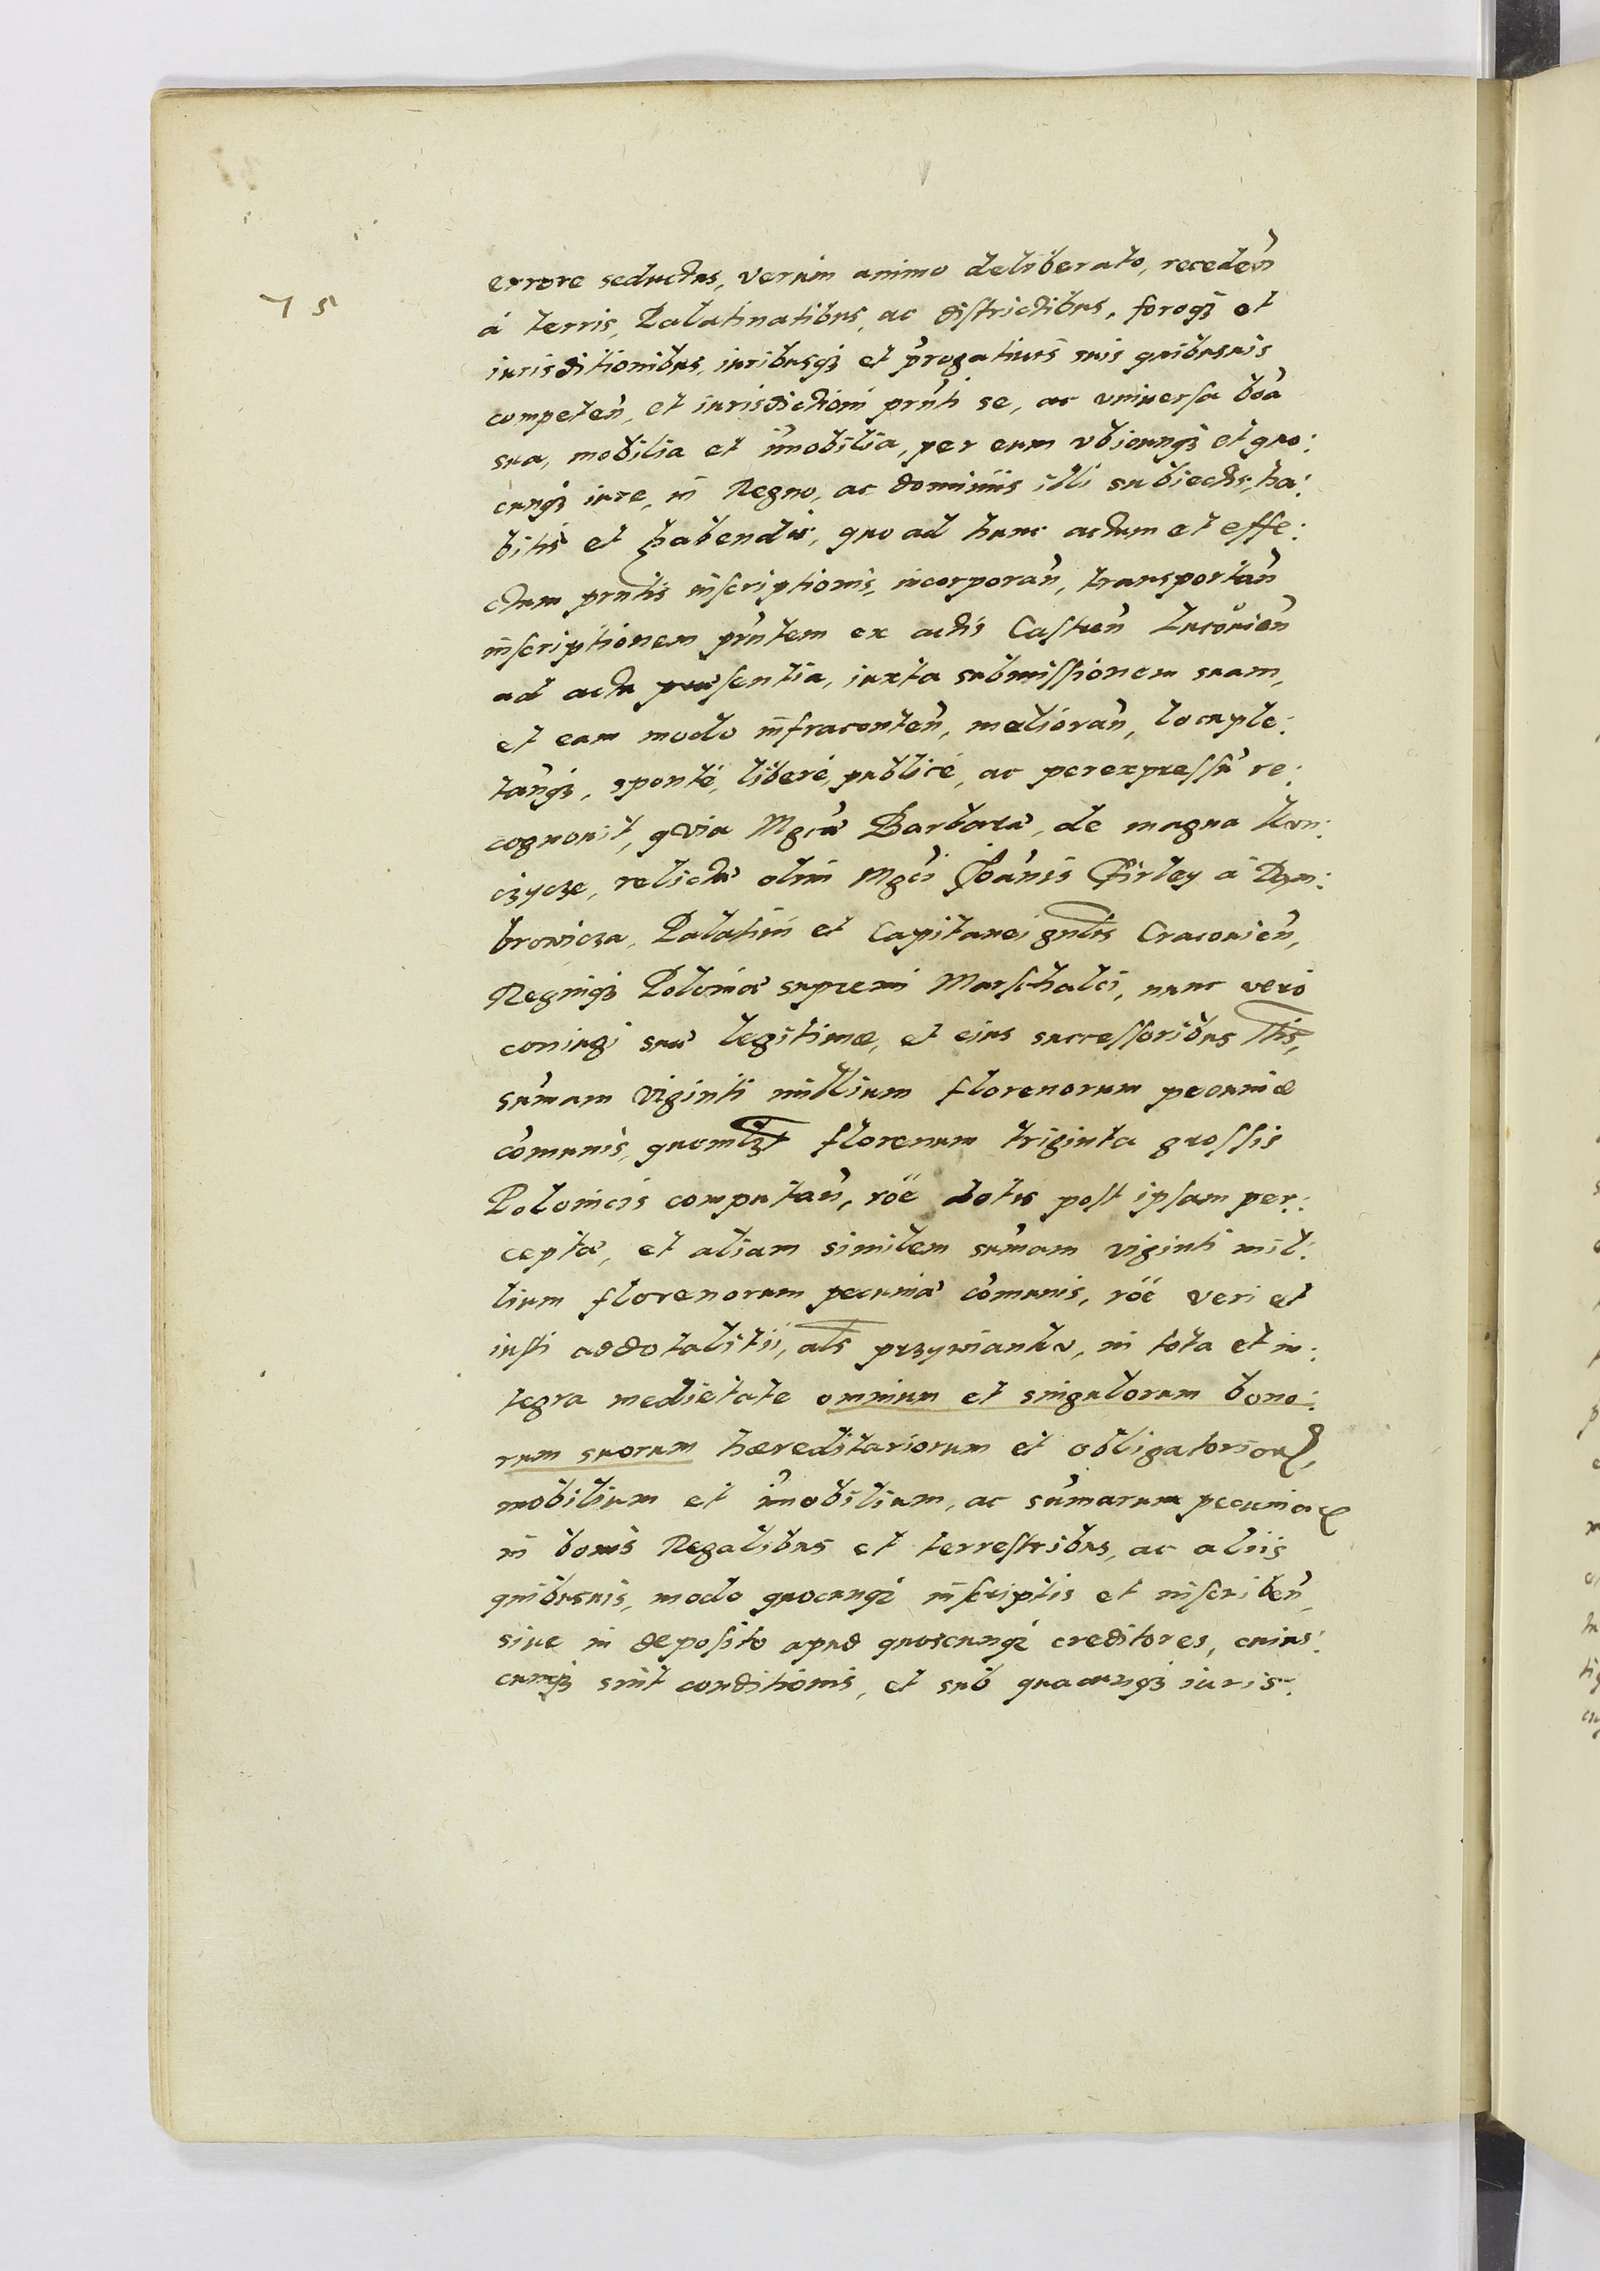 75
errore seductus, verum animo deliberato, receden
á terris, Palatinatibus, ac districtibus, foroq3 et
iurisditionibus, iuribusq3 et prõgatiuis suis quibusuis
competen̄, et iurisdictioni prñti se, ac vniuersa boã
sua, mobilia et im̃obilia, per eum vbicunq3 et quo:
cunq3 iure, in Regno, ac dominiis illi subiectis, ha:
bitis et habendis, quo ad hunc actum et effe:
ctum prñtis inscriptionis, incorporan̄, transportan̄
inscriptionem prñtem ex actis Castren̄ Lucouien̄
ad acta præsentia, iuxta submissionem suam,
et eam modo infraconten̄, melioran̄, locuple:
tan̄q3, sponté, liberé, publicé, ac perexpressũ re:
cognouit, qvia Mgcæ Barbaræ, de magna Kon:
czycze, relictæ olim Mgci Joãnis Firley á Dąm:
browicza, Palatini et Capitanei gñlis Cracouien̄,
Regniq3 Poloniæ supremi Marschalci, nunc veró
coniugi suæ legitimæ, et eius successoribus ltis,
sum̃am viginti millium florenorum pecuniæ
com̃unis, quoml3t florenum triginta grossis
Polonicis computan̄, röe dotis post ipsam per:
ceptæ, et aliam similem sum̃am viginti mil:
lium florenorum pecuniæ com̃unis, röe veri et
iusti addotalitii, als przywianku, in tota et in:
tegra medietate omnium et singulorum bono:
rum suorum hæreditariorum et obligatorioꝝ,
mobilium et im̃obilium, ac sum̃arum pecuniaꝝ
in bonis Regalibus et terrestribus, ac aliis
quibusuis, modo quocunq3 inscriptis et inscriben̄,
siue in deposito apud quoscunq3 creditores, cuius:
cunq3 sint conditionis, et sub quacunq3 iuris: